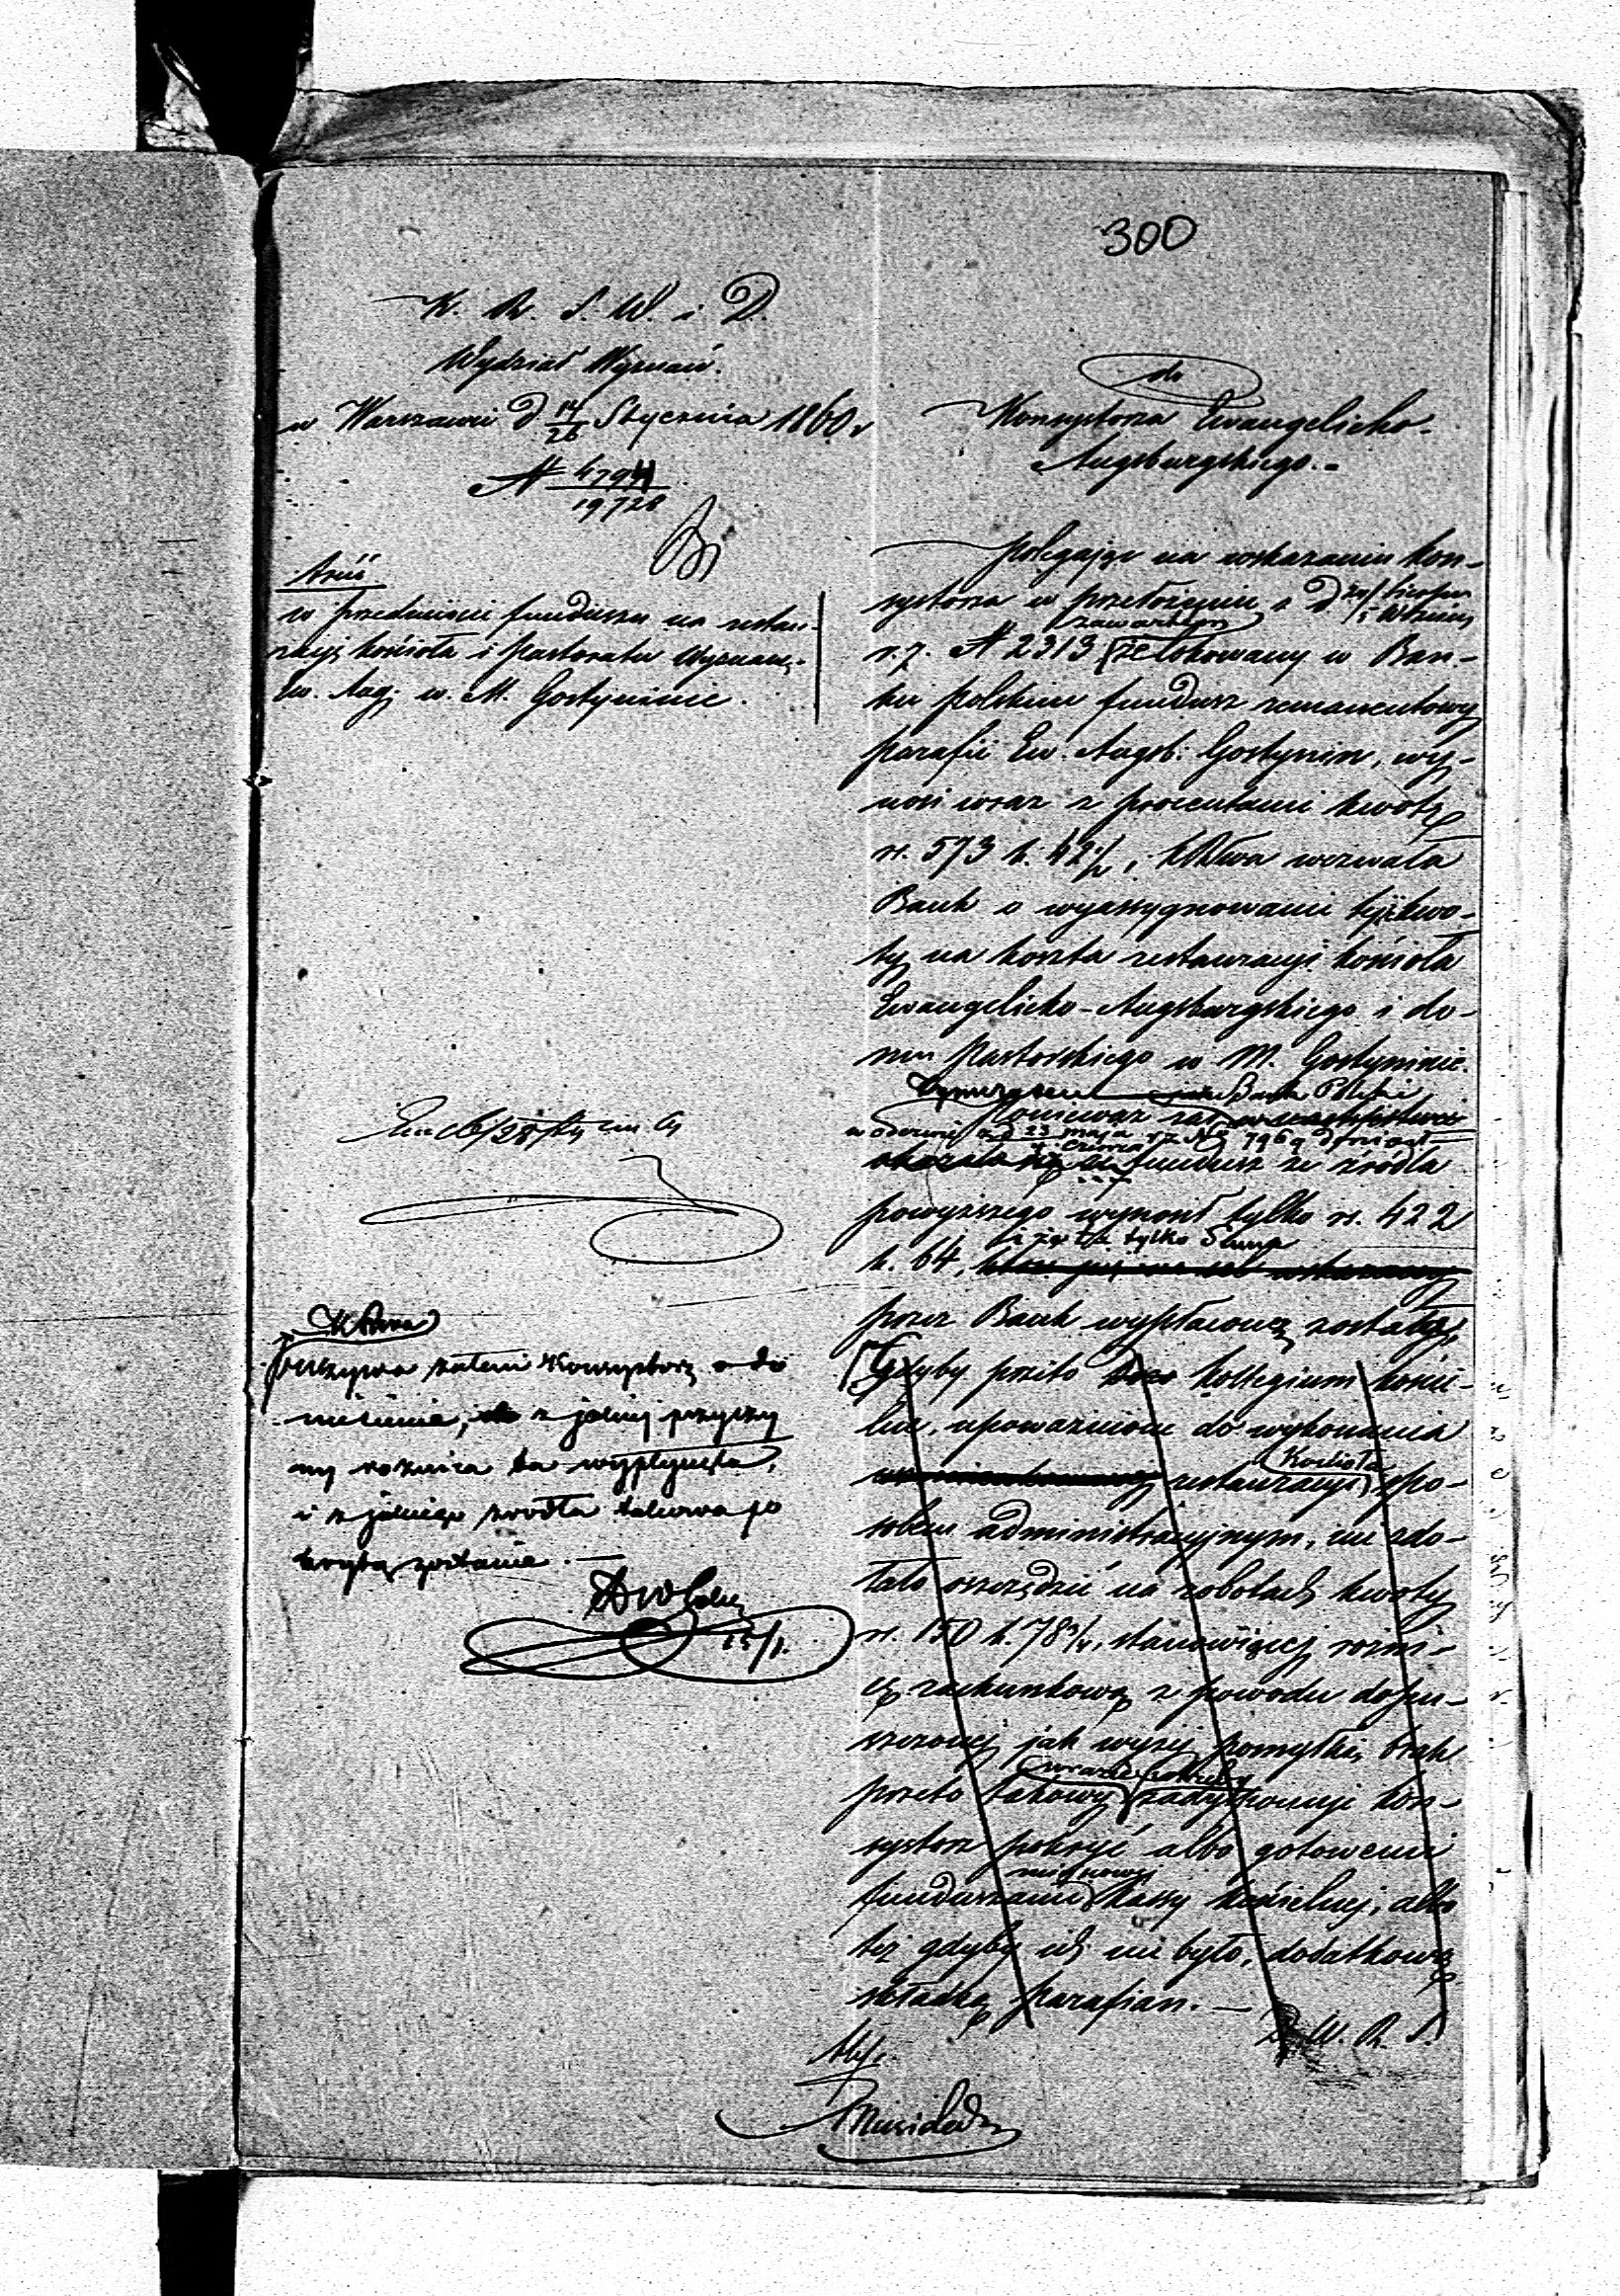 300
K. R. S. W. i D.
Wydział Wyznań.
w Warszawie d 14/26 Stycznia 1860 r
N 4794/19728
w przedmiocie funduszu na restau-
racyę kościoła i Pastoratu Wyznan.
Ew. Aug. w. M. Gostyninie.
do
Konsystorza Ewangelicko-
Augsburgskiego.-
Polegając na wskazaniu Kon-
systorza w przełożeniu z d 20/ Sierpnia / 1 Września
zawartym
r. z. N 2313 że lokowany w Ban-
ku polskim fundusz remanentowy
parafii Ew. Augsb: Gostynin, wy-
nosi wraz z procentami kwotę
rs. 573 k. 42 1/2, KRząowa wezwała
Bank o wyassygnowanie tejże kwo-
ty na koszta restauracyi kościoła
Ewangelicko-Augsburgskiego i do-
mu Pastorskiego w M. Gostyninie.
Bank Polski
Ponieważ zaś
w odezwie z d 23 maja / 4 Czerwca r z N 7969
fundusz ze źródła
powyższego wynosi tylko rs. 422
i że ta tylko Summa
k. 64,
przez Bank wypłaconą została,
Gdyby przeto Kollegium kościel-
ne, upoważnione do wykonania
Kościoła
restauracyi spo-
sobem administracyjnym, nie zdo-
łało oszczędzić na robotach kwoty
rs. 150 k. 78 3/4, stanowiącej różni-
cę rachunkową z powodu dopu-
szczonej jak wyżej pomyłki, brak
w razie potrzeby
przeto takowy zadysponuje Kon-
systorz pokryć albo gotowemi
miejscowej
funduszami Kassy kościelnej, albo
też gdyby ich nie było, dodatkową
składką Parafian. —
D. W. R. S.
wzywa zatem Konsystorz o do
niesienie, z jakiej przyczy
ny różnica ta wypłynęła,
i z jakiego źródła takowa po
krytą zostanie. —
25/1.